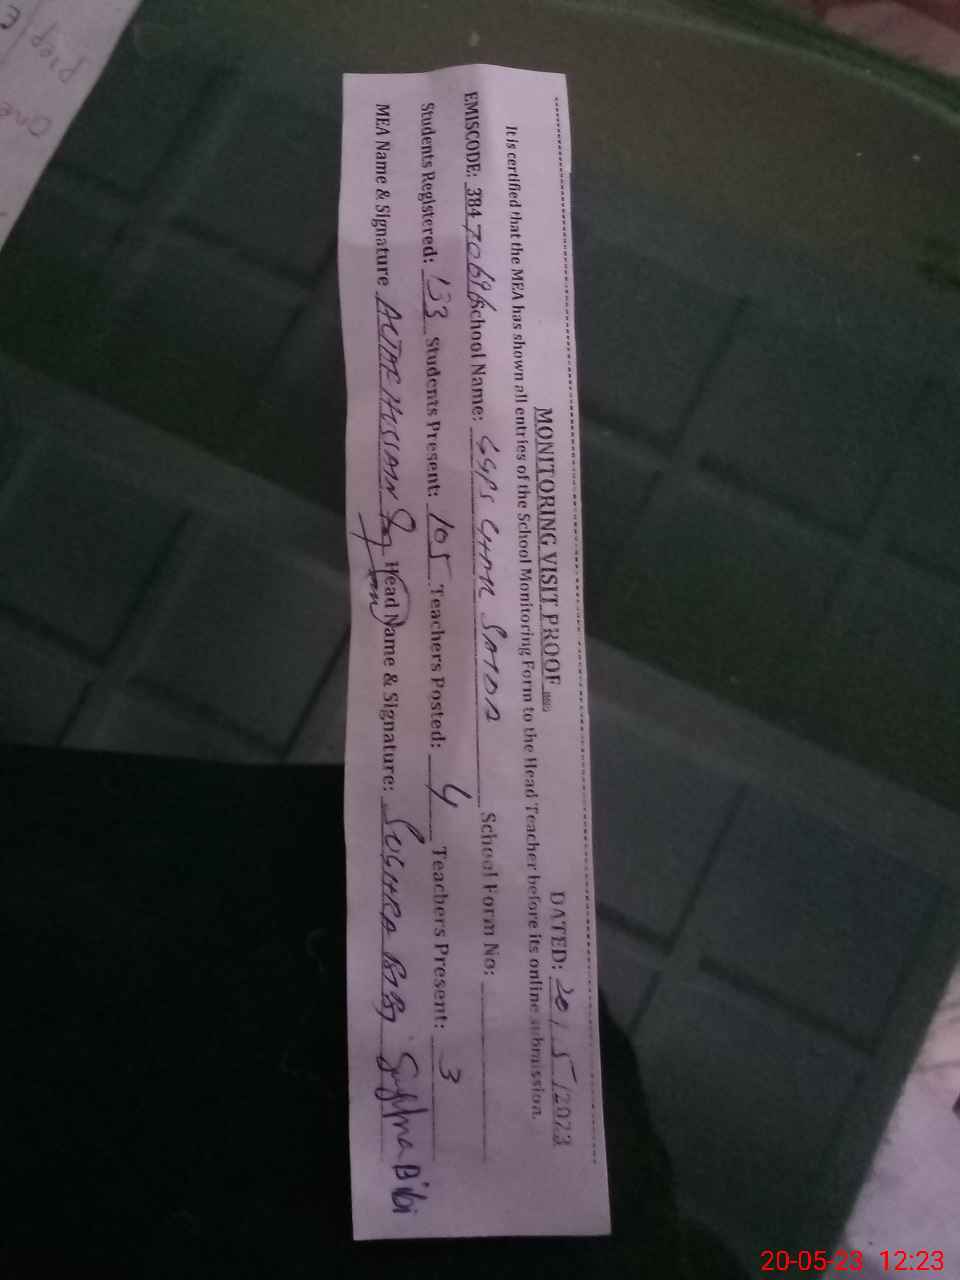 MONITORING VISIT PROOF
DATED: 20/5/2023
It is certified that the MEA has shown all entries of the School Monitoring Form to the Head Teacher before its online submission.
EMISCODE: 38470696 School Name: GGPS CHAK SAIDA School Form No:
Students Registered: 133 Students Present: 105 Teachers Posted: 4 Teachers Present: 3
MEA Name & Signature ALTAF HUSSIAN Head Name & Signature: SUGHRA BIBI Sughra Bibi
one
prep
20-05-23 12:23